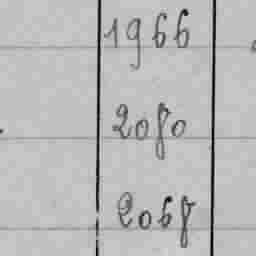 1966
2080
2068